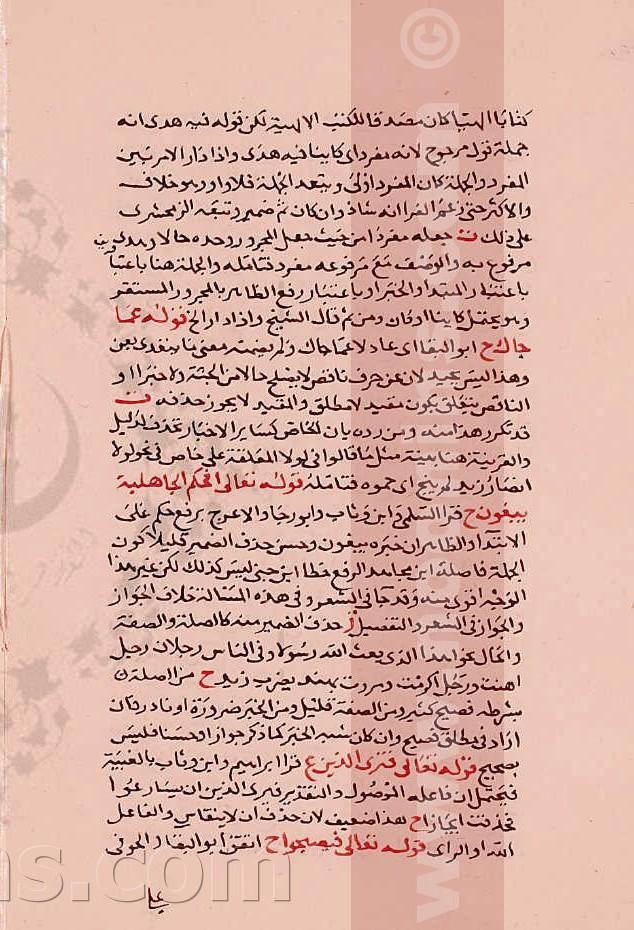 كتابا الهيا كان مصدقا للكتب الالهية لكن قوله فيه هدى انه
جملة قول مرجوح لانه مفرد اي كاينا فيه هدى واذا دار الامر بين
المفرد والجملة كان المفرد اولى وبتعد الجملة فلا واو وهو خلاف
والاكثر حتى زعم الفرا انه شاذ وان كان ثم ضمير وتبعه الزمخشرى
على ذلك ت جعله مفردا من حيث جعل المجرور وحده حالا وهدى ونور
مرفوع به والوصف مع مرفوعه مفرد فتامله والجملة هنا باعتبا
باعتبار المبتدا والخبر او باعتبار رفع الظاهر بالمجرور المستقر
وهو يحتمل كاينا او كان ومن ثم قال الشيخ واذا دار الخ قوله عما
جاك ح ابو البقا اي عادلا عما جاك ولم يضمنه معنى ما يتعدى بعن
وهذا ليس بجيد لان عن حرف ناقص لا يصلح حالا من الجثة ولا خبرا او
الناقص يتعلق بكون مقيد لا مطلق والمقيد لا يجوز حذفه ت
قد تكرر هذا منه ومن رده بان الخاص كساير الاخبار تحذف لدليل
والقرينة هنا بينة مثل ما قالوا في لولا المعلقة على خاص في نحو لولا
انصار زيد لم ينج اي حموه فتامله قوله تعالى افحكم الجاهلية
يبغون ح قرا السلمى وابن وثاب وابو رجا والاعرج برفع حكم على
الابتدا والظاهر ان خبره يبغون وحسن حذف الضمير قليلا كون
الجملة فاصلة ابن مجاهد الرفع خطا ابن جنى ليس كذلك لكن غير هذا
الوجه اقوى منه وقد جا في الشعر وفي هذه المسالة خلاف الجواز
والجواز في الشعر والتفصيل حذف الضمير منه كالصلة والصفة
والحال نحو اهذا الذى بعث الله رسولا وفي الناس رجلان رجل
اهنت ورجل اكرمت ومررت بهند يضرب زيد ح من الصلة
بشرطه فصيح كثير ومن الصفة قليل ومن الخبر ضرورة او نادر فان
اراد في مطلق فصيح وان كان شبه الخبر كما ذكر جوازا وحسنا فليس
بصحيح قوله تعالى فترى الذين ع قرا ابراهيم وابن وثاب بالغيبة
فيحتمل ان فاعله الموصول والتقدير فيرى الذين ان يسارعوا
فحذفت ايجازا ح هذا ضعيف لان حذف ان لا ينقاس والفاعل
الله او الراى قوله تعالى فيصبحوا ح اتفق ابو البقا والحوفى
على
www.
ns.com
©